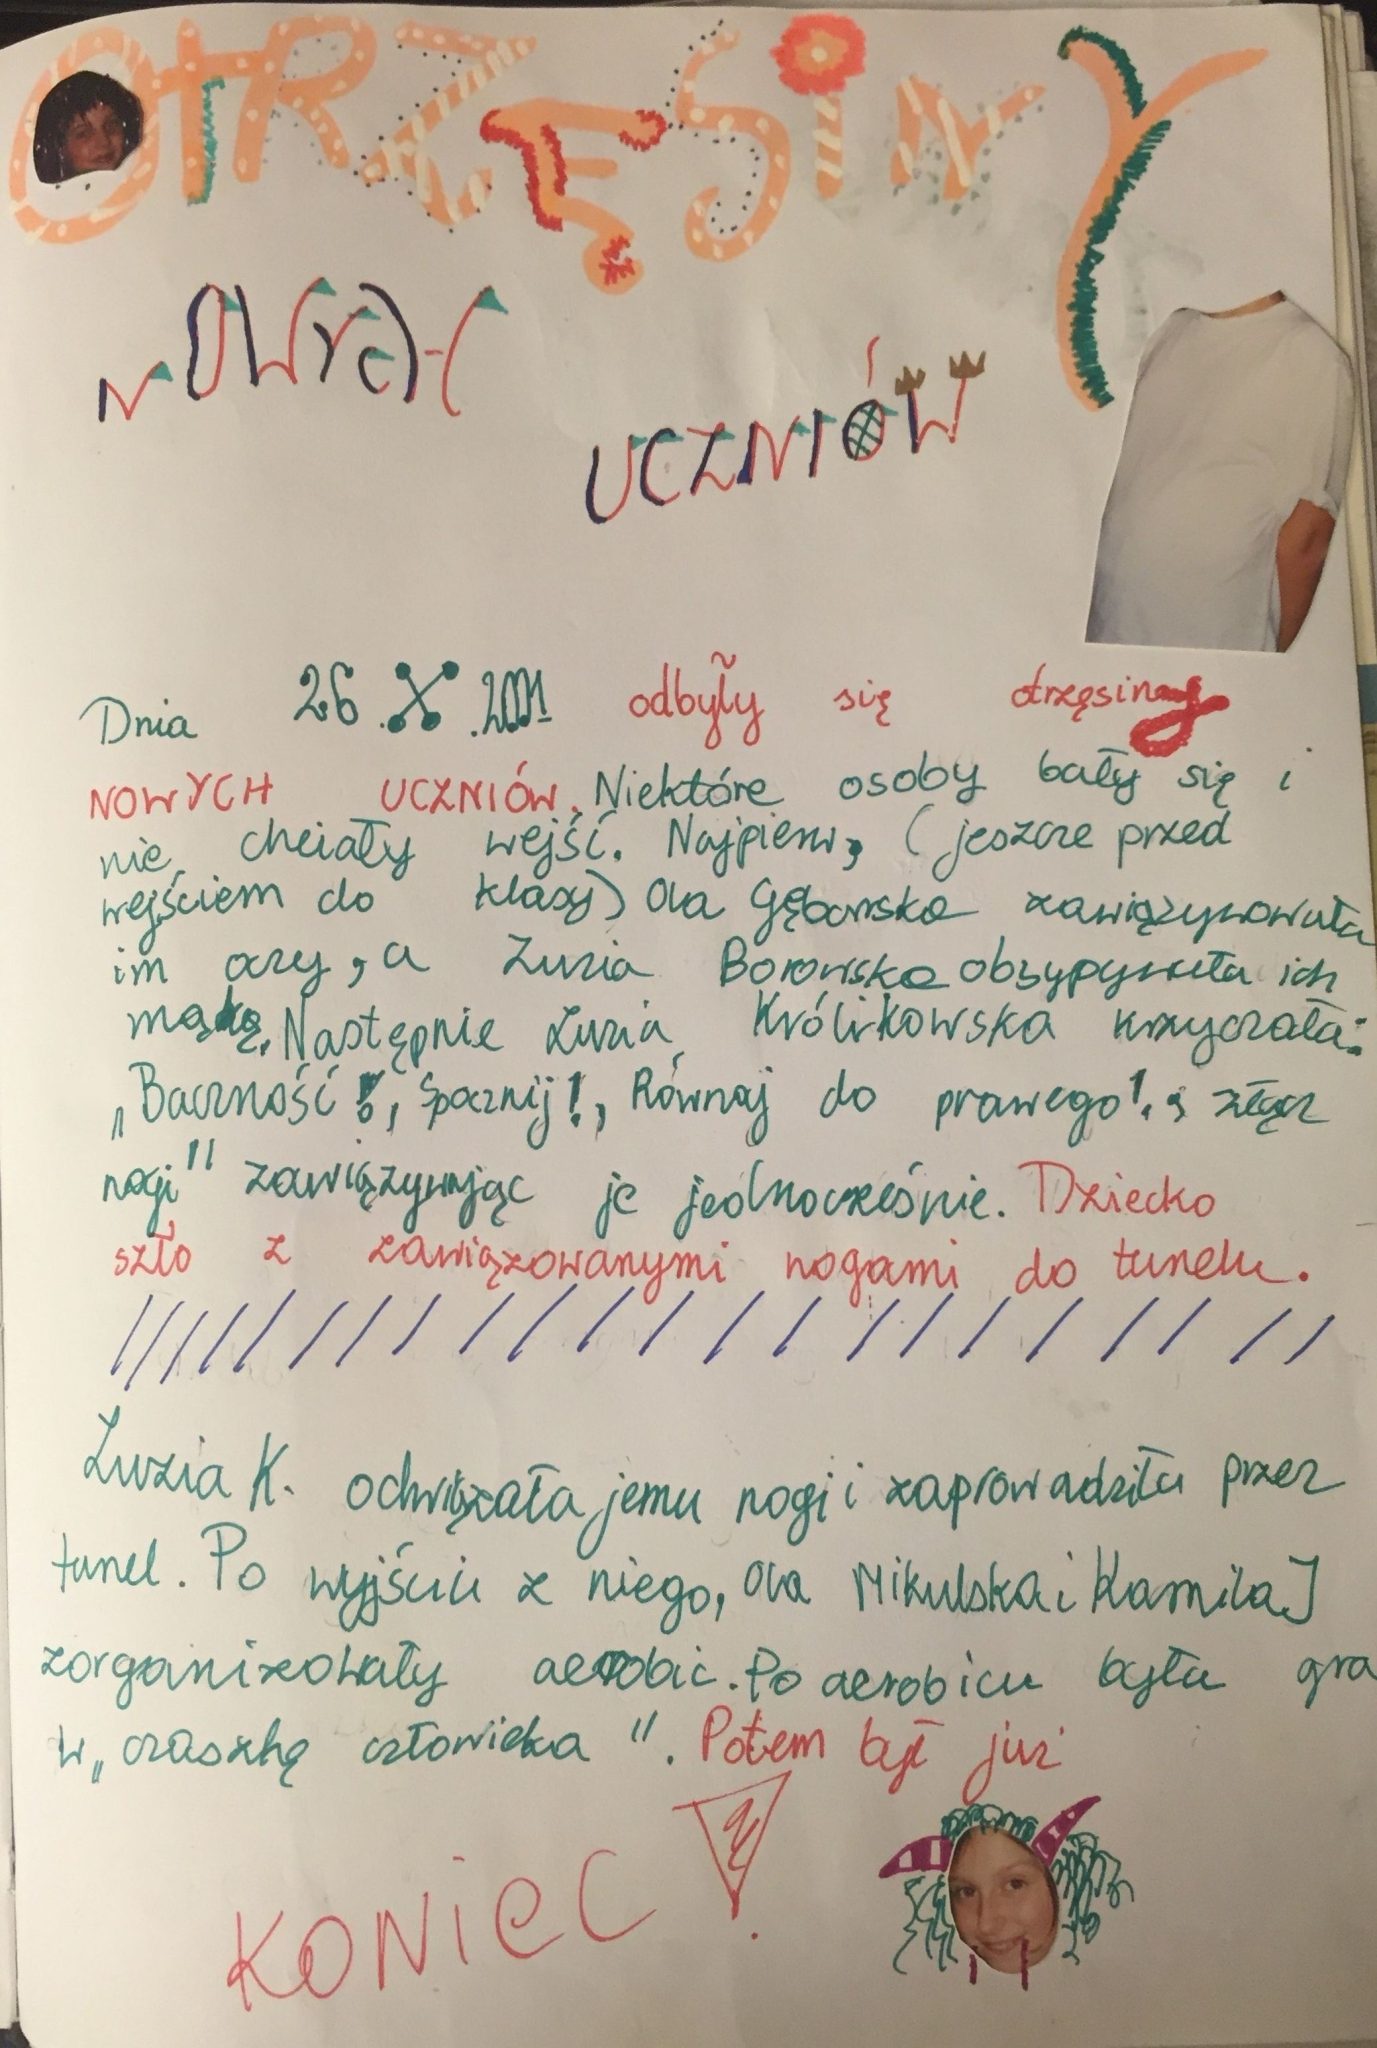 OTRZĘSINY
NOWYCH
UCZNIÓW
Dnia 26.X.2001 odbyły się otrzęsiny
NOWYCH UCZNIÓW. Niektóre osoby bały się i
nie chciały wejść. Najpierw, (jeszcze przed
wejściem do klasy) Ola Gęborska zawiązywowała
im oczy, a Zuzia Borowska obsypywała ich
mąką. Następnie Zuzia Królikowska krzyczała:
„Baczność!, Spocznij!, Równaj do prawego!, złącz
nogi" zawiązywając je jednocześnie. Dziecko
szło z zawiązowanymi nogami do tunelu.
Zuzia K. odwiązała jemu nogi i zaprowadziła przez
tunel. Po wyjściu z niego, Ola Mikulska i Kamila J
zorganizowały aerobic. Po aerobicu była gra
w „czaszkę człowieka". Potem był już
KONIEC!